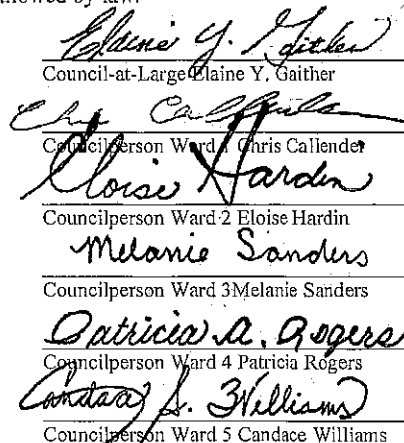 by law.
Elaine Y. Gaither
Council-at-Large Elaine Y. Gaither
Chris Callender
Councilperson Ward 1 Chris Callender
Eloise Hardin
Councilperson Ward 2 Eloise Hardin
Melanie Sanders
Councilperson Ward 3Melanie Sanders
Patricia A. Rogers
Councilperson Ward 4 Patricia Rogers
Candace S. Williams
Councilperson Ward 5 Candace Williams